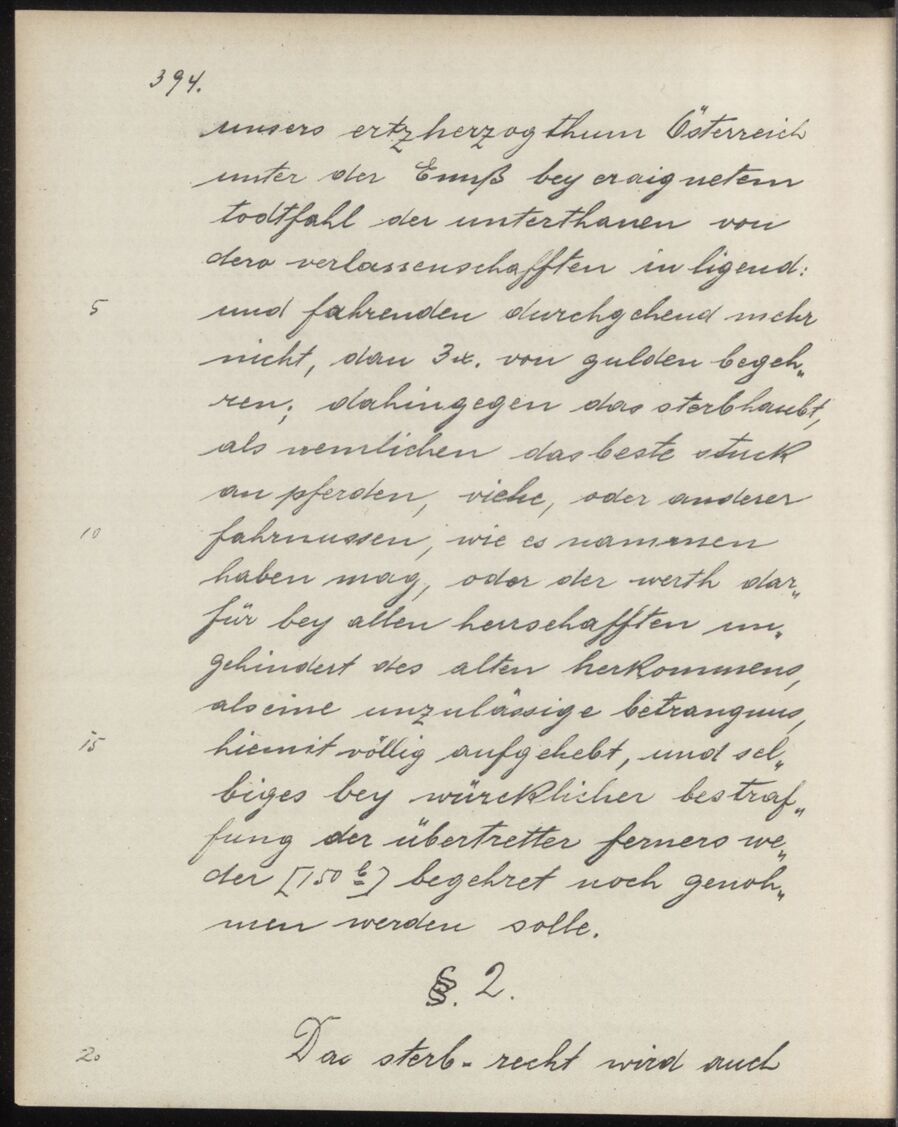 394.
unsers ertzherzogthum Österreich
unter der Ennß bey eraignetem
todtfahl der unterthanen von
dero verlassenschafften in ligend:
5 und fahrenden durchgehend mehr
nicht, dan 3 x. von gulden begeh„
ren; dahingegen das sterbhaubt,
als nemlichen das beste stuck
an pferden, viehe, oder anderer
10 fahrnussen, wie es nammen
haben mag, oder der werth dar„
für bey allen herrschafften un„
gehindert des alten herkommens,
als eine unzulässige betrangnus,
15 hiemit völlig aufgehebt, und sel„
biges bey würcklicher bestraf„
fung der übertretter ferners we„
der [150 b] begehret noch genoh„
men werden solle.
§. 2.
20 Das sterb-recht wird auch